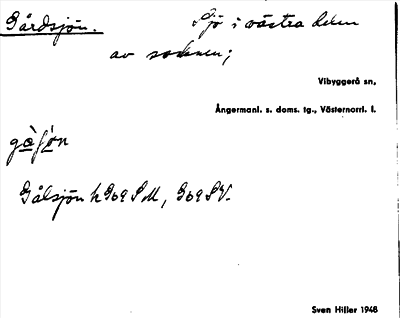 Gårdsjön. Sjö i västra delen
av socknen;
Vibyggerå sn,
Ångermanl. s. doms. tg., Västernorrl. l.
Gålsjön k 909 SM, 909 SV.
Sven Hiller 1948